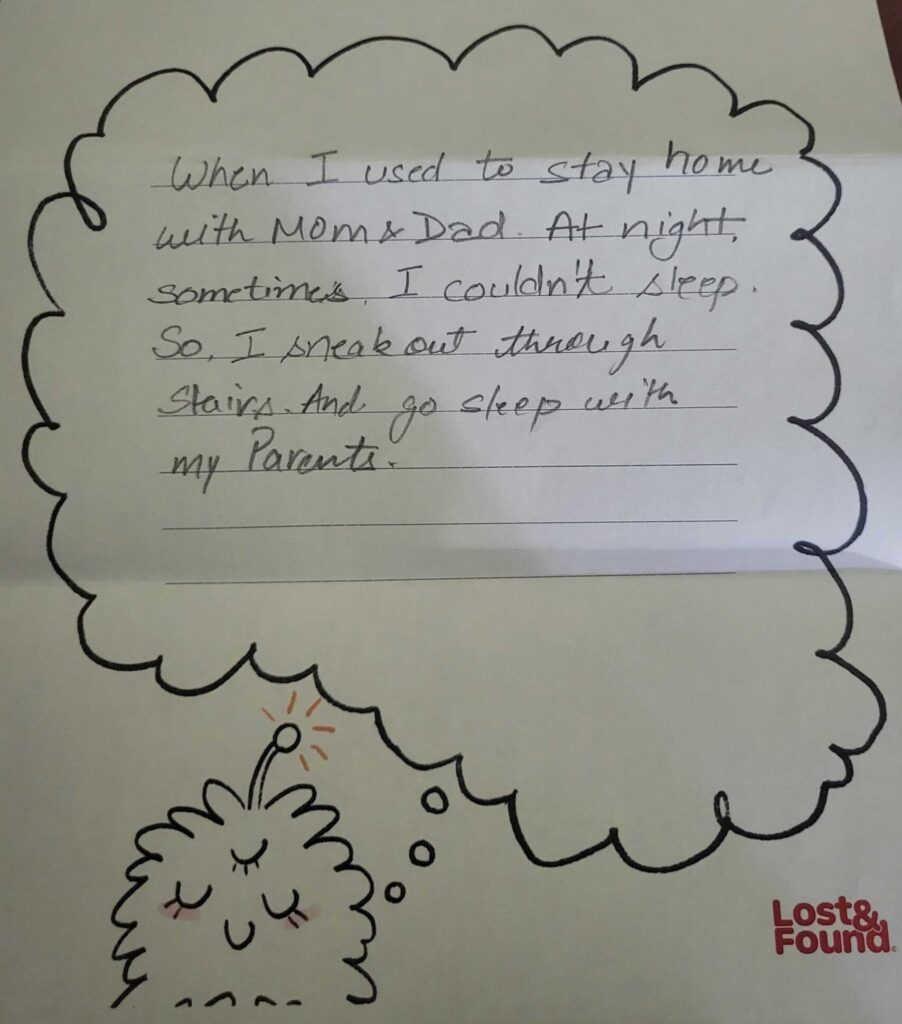 When I used to stay home
with Mom & Dad. At night,
sometimes, I couldn't sleep.
So, I sneak out through
Stairs. And go sleep with
my Parents.
Lost&
Found